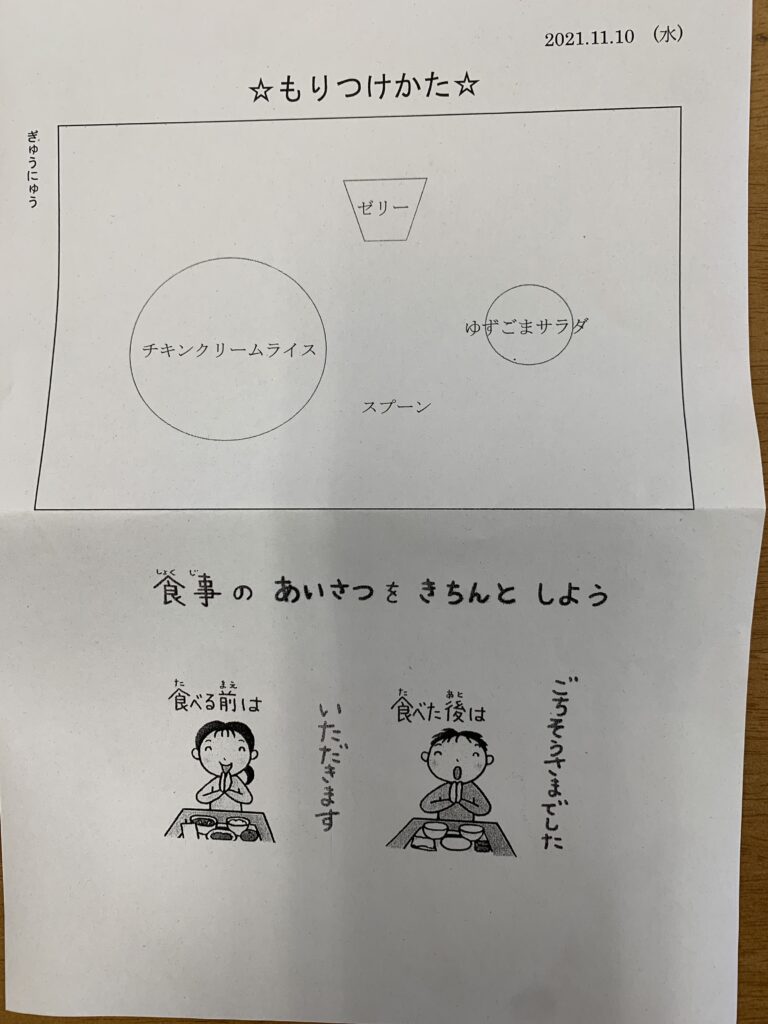 2021.11.10 （水）
☆もりつけかた☆
ぎゅうにゅう
ゼリー
チキンクリームライス
ゆずごまサラダ
スプーン
しょく じ
食事の あいさつを きちんと しよう
た まえ
食べる前は
いただきます
た あと
食べた後は
ごちそうさまでした